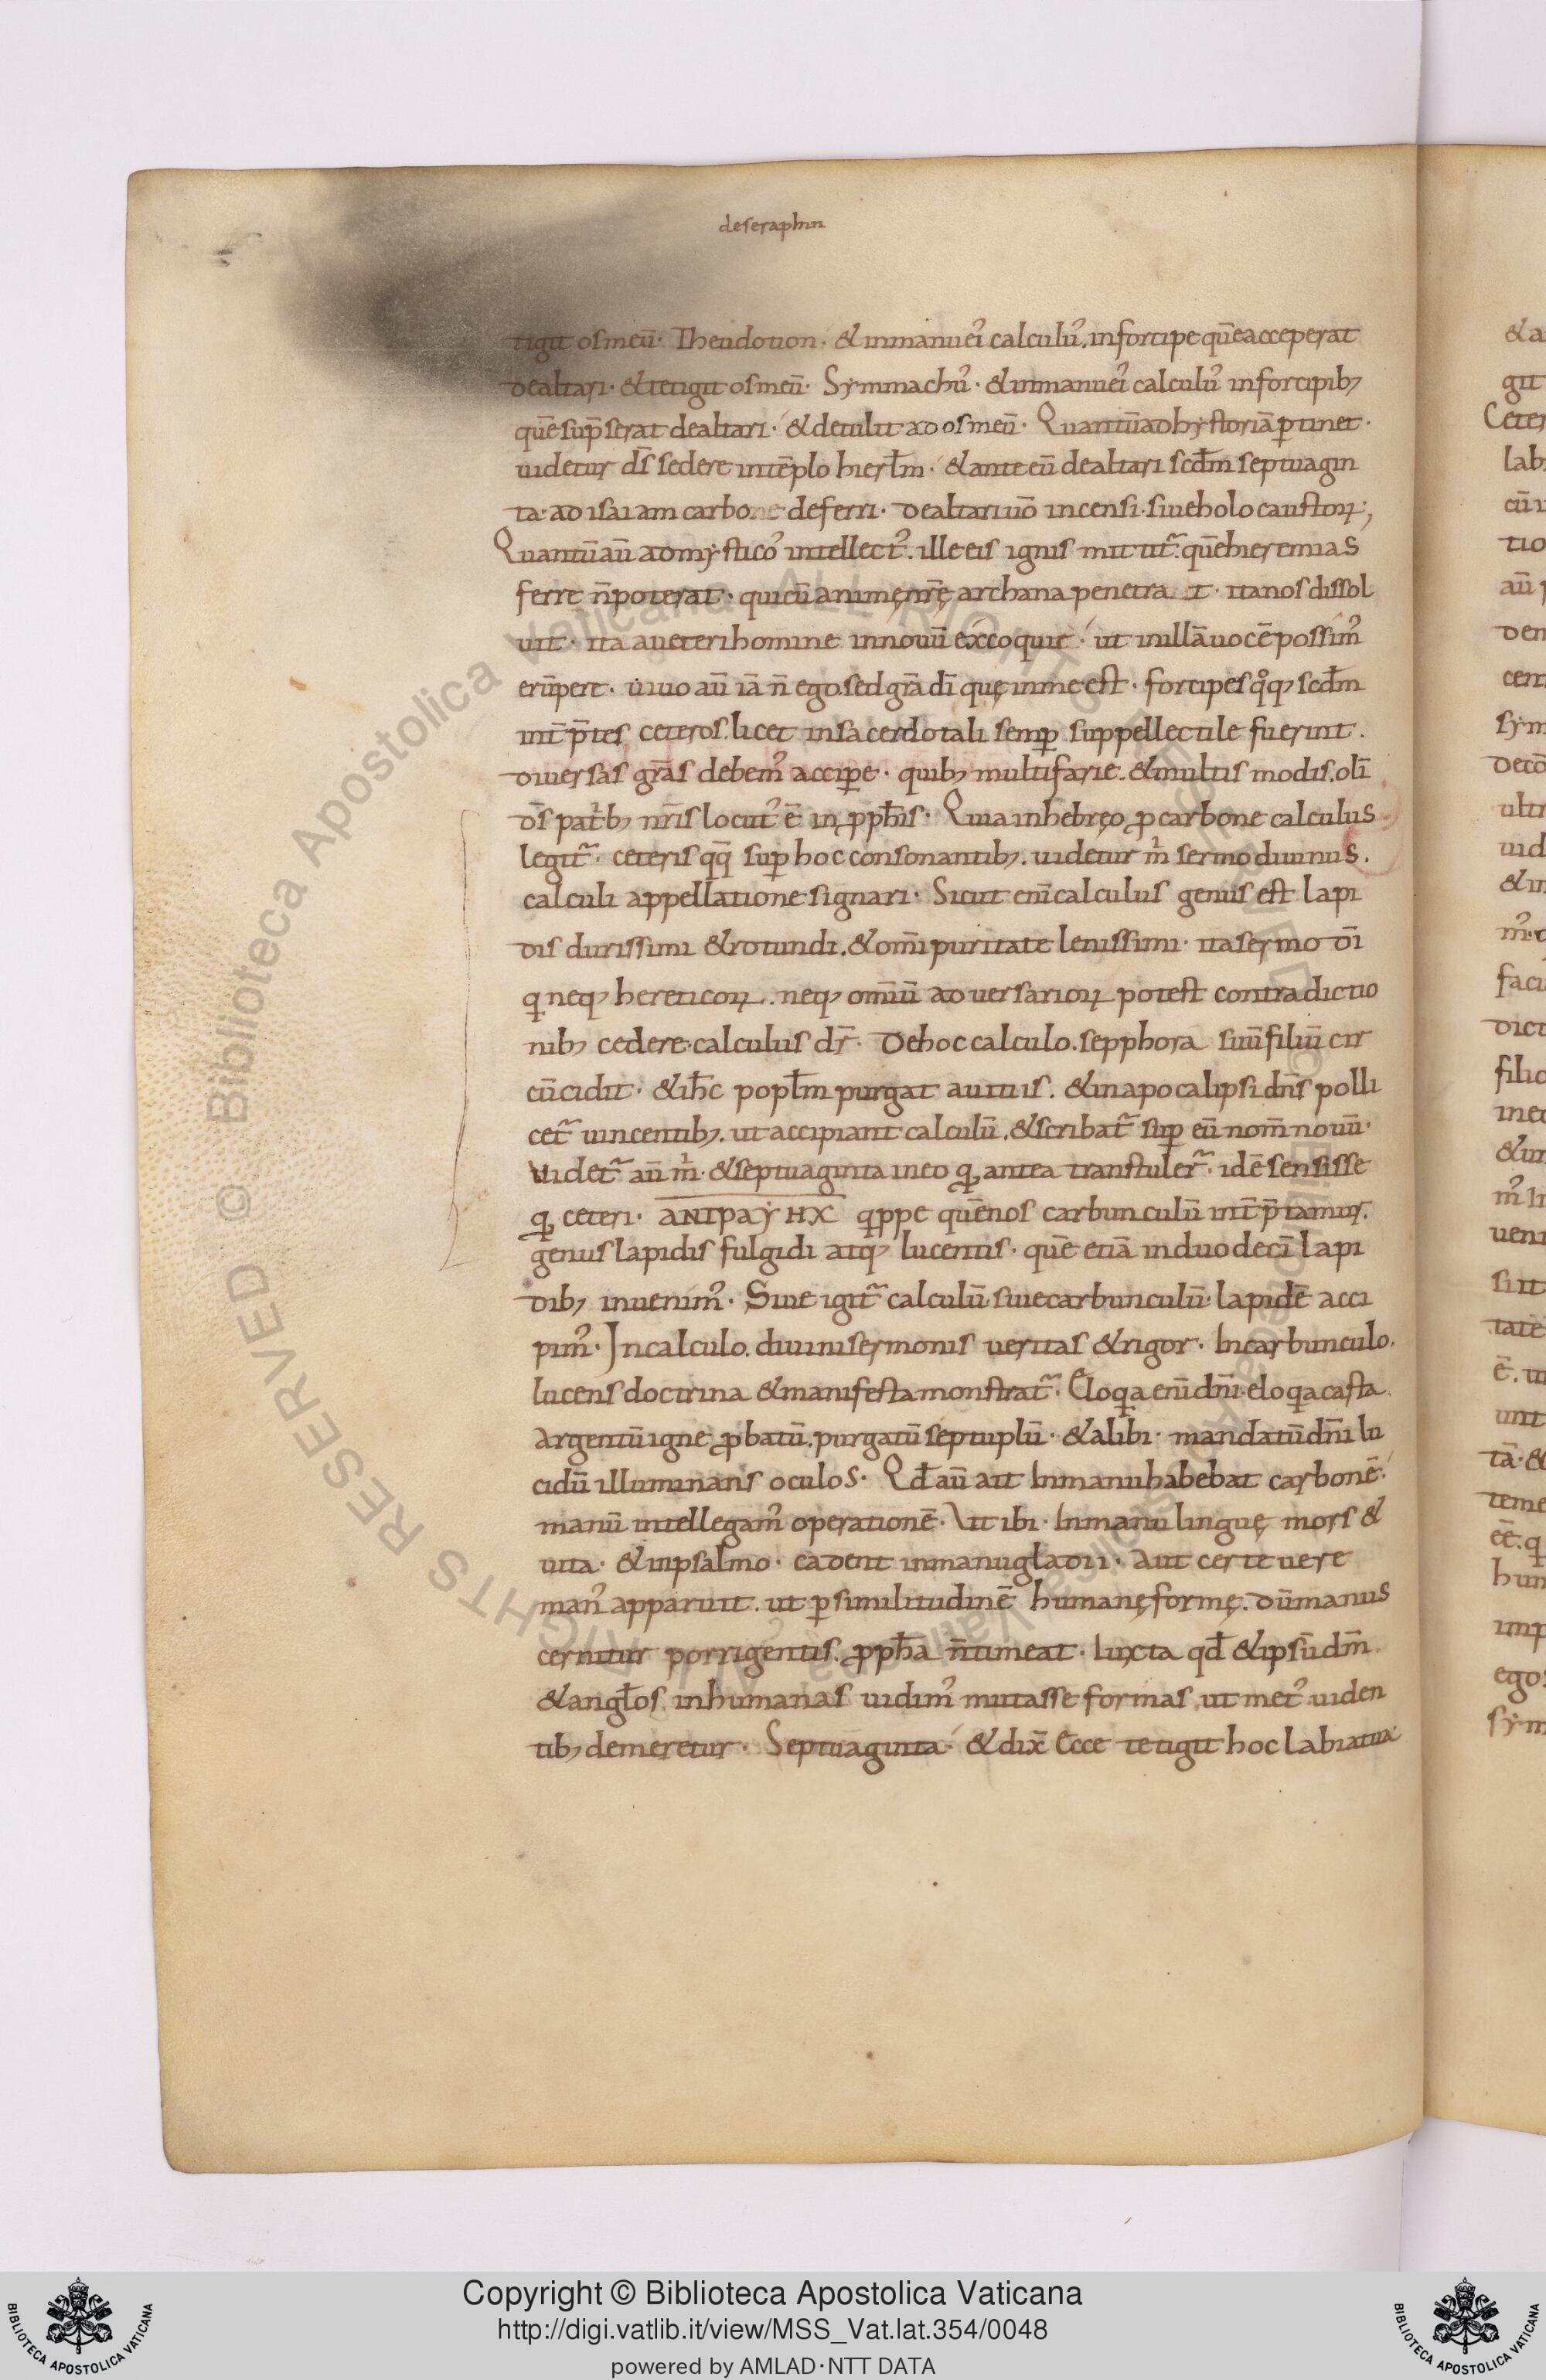 de seraphin
tigit os meū· Theudotion· & in manu ei᾽ calculu᾽. in forcipe quē acceperat
de altari· & tetigit os meū· Symmachu᾽· & in manu ei᾽ calculu᾽ in forcipib;
quē sup̄serat de altari· & detulit ad os meū· Quantū ad hystoriā ꝑtinet·
uidetur d̄s sedere in tēplo hierłm· & ante eū de altari scđm septuagin
ta· ad isaiam carbone deferri· de altari uō incensi· siue holocaustoꝝ;
Quantū aū ad mystico᾽ intellect᾽. ille eis ignis mittit᷒. quē hieremias
ferre n̄ poterat· qui cū animę nr̄ę archana penetra t· ita nos dissol
uit· ita a ueteri homine in nouū excoquit· ut in illā uocē possim᾽
erūpere· uiuo aū iā n̄ ego sed gr̄a dī quę in me est· forcipes qͦq; scđm
int̄p̄tes ceteros. licet in sacerdotali semꝑ suppellectile fuerint.
diuersas gr̄as debem᾽ acciꝑe· quib; multifarie. & multis modis. olī
d̄s patͥb; nr̄is locut᾽ ē in ꝓpħis· Quia in hebręo ꝓ carbone calculus
legit᷒· ceteris qq̄ suꝑ hoc consonantib;. uidetur mͥ sermo diuinus.
calculi appellatione signari· Sicut enī calculus genus est lapi
dis durissimi & rotundi. & omī puritate lenissimi· ita sermo dī
q neq; hereticoꝝ. neq; omniū aduersarioꝝ potest contradictio
nib; cedere· calculus dr̄· De hoc calculo. sepphora suū filiū cir
cūcidit· & ih̄c popłm purgat a uitiis. & in apocalipsi dn̄s polli
cet᷒ uincentib;. ut accipiant calculū. & scribat᷒ suꝑ eū nom̄ nouū·
Videt᷒ aū mͥ· & septuaginta in eo q antea transtuler᷒· idē sensisse
q ceteri· ΑΝΤΡΑΥΗΧ qppe quē nos carbunculū int̄p̄tamur.
genus lapidis fulgidi atq; lucentis· quē etiā in duodecī lapi
dib; inuenim᾽· Siue igit᷒ calculū· siue carbunculū· lapidē acci
pim᾽· In calculo. diuini sermonis ueritas & rigor· In carbunculo.
lucens doctrina & manifesta monstrat᷒· Eloqa enī dn̄i· eloqa casta.
Argentū igne ꝓbatū. purgatū septuplū· & alibi· mandatū dn̄i lu
cidū illuminans oculos· Qđ aū ait In manu habebat carbonē·
manū intellegam᾽ operationē· Vt ibi· In manu linguę mors &
uita· & in psalmo· cadent in manu gładii· Aut certe uere
man᾽ apparuit. ut ꝑ similitudinē humanę formę. dū manus
cernitur porrigentis. ꝓpħa n̄ timeat· Iuxta qđ & ipsū dm̄
& angłos. in humanas uidim᾽ mutasse formas. ut met᾽ uiden
tib; demeretur· Septuaginta· & dix̄ Ecce tetigit hoc labia tua·
Copyright © Biblioteca Apostolica Vaticana
http://digi.vatlib.it/view/MSS_Vat.lat.354/0048
powered by AMLAD·NTT DATA